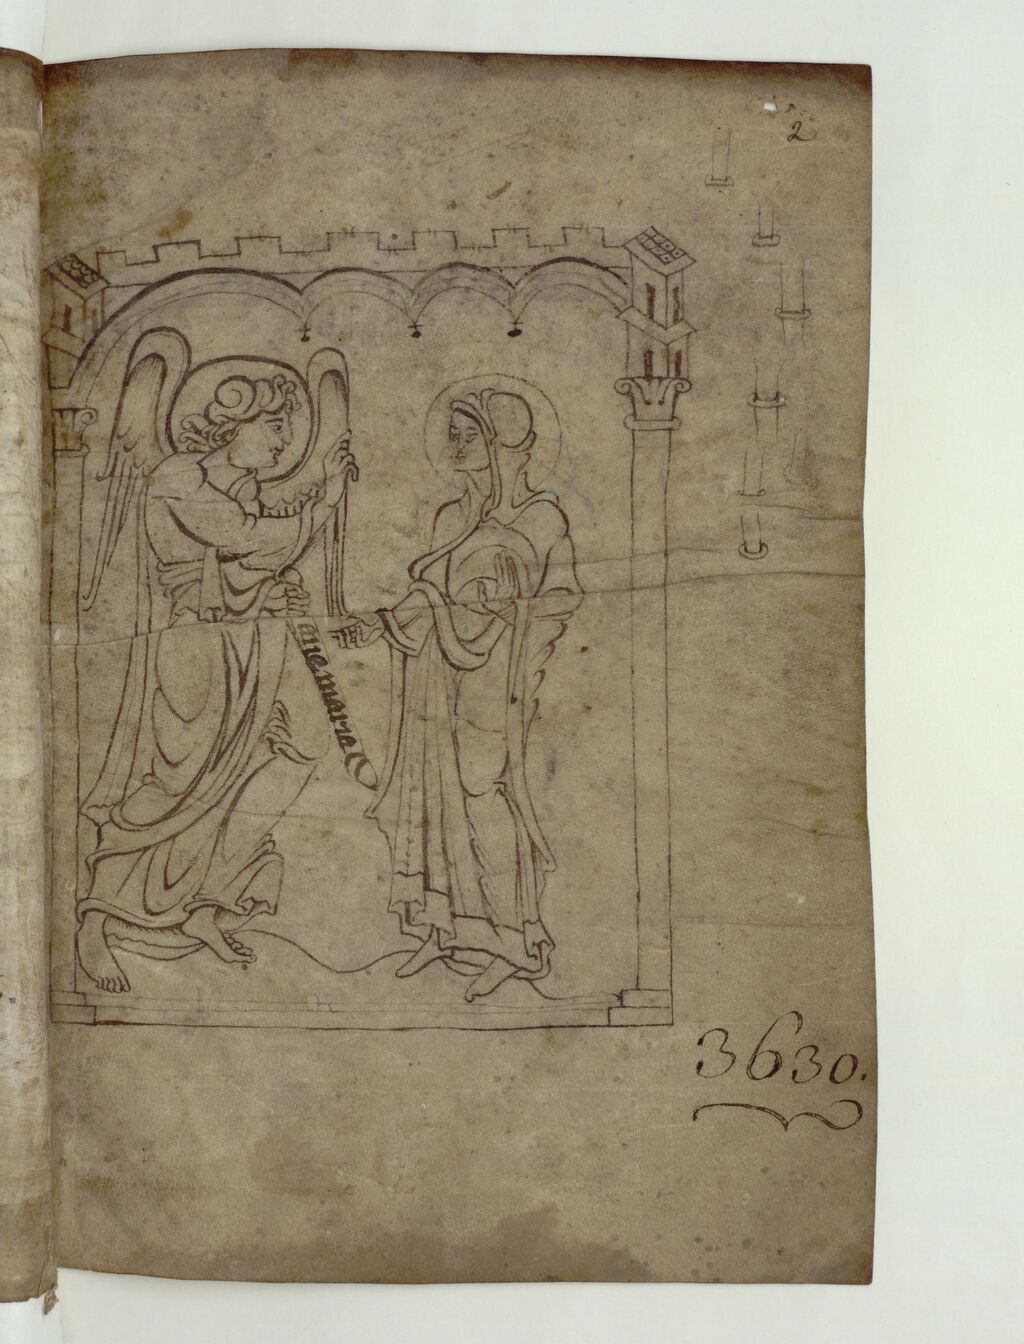 2
aue maria
3630.